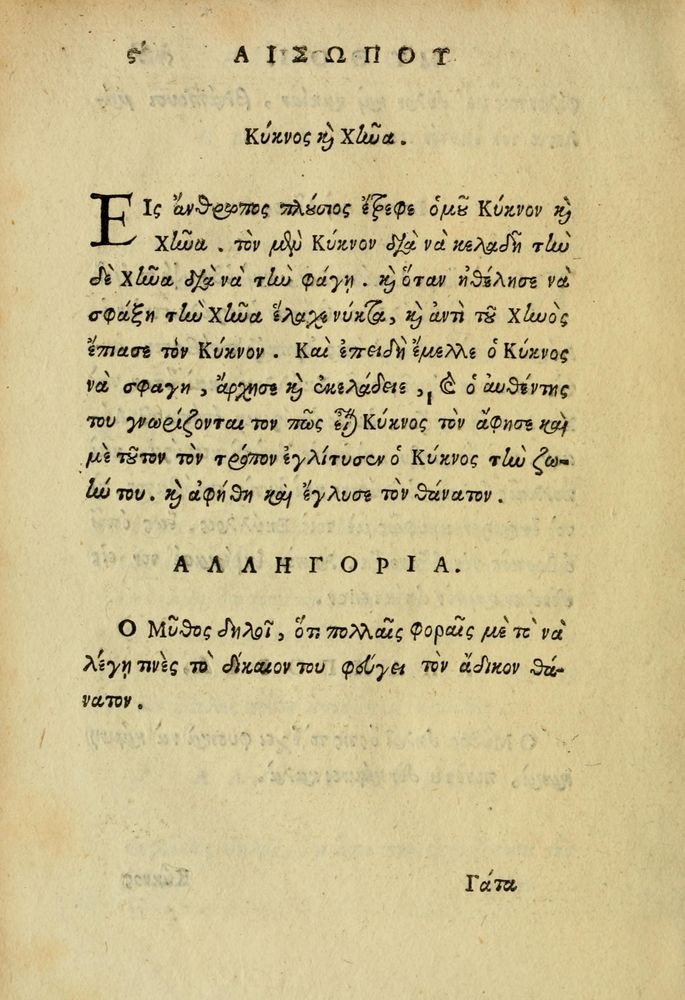 ϛʹ ΑΙΣΩΠΟΥ
Κύκνος καὶ Χῆνα.
ΕΙς ἄνθρωπος πλούσιος ἔτρεφε ὁμοῦ Κύκνον καὶ
Χῆνα. τὸν μὲν Κύκνον διὰ νὰ κελαδῆ τὴν
δὲ Χῆνα διὰ νὰ τὴν φάγη. καὶ ὅταν ἠθέλησε νὰ
σφάξη τὴν Χῆνα ἔλαχε νύκτα, καὶ ἀντὶ τοῦ Χηνὸς
ἔπιασε τὸν Κύκνον. Καὶ ἐπειδὴ ἔμελλε ὁ Κύκνος
νὰ σφαγῆ, ἄρχησε καὶ ἐκελάδειε, καὶ ὁ αὐθέντης
του γνωρίζονται τον πῶς εἶναι Κύκνος τὸν ἄφησε καὶ
μὲ τοῦτον τὸν τρόπον ἐγλίτυσεν ὁ Κύκνος τὴν ζω-
ήν του. καὶ ἀφήθη καὶ ἔγλυσε τὸν θάνατον.
ΑΛΛΗΓΟΡΙΑ.
Ο Μῦθος δηλοῖ, ὅτι πολλαῖς φοραῖς μὲ τὸ νὰ
λέγη τινὲς τὸ δίκαιον του φεύγει τὸν ἄδικον θά-
νατον.
Γάτα